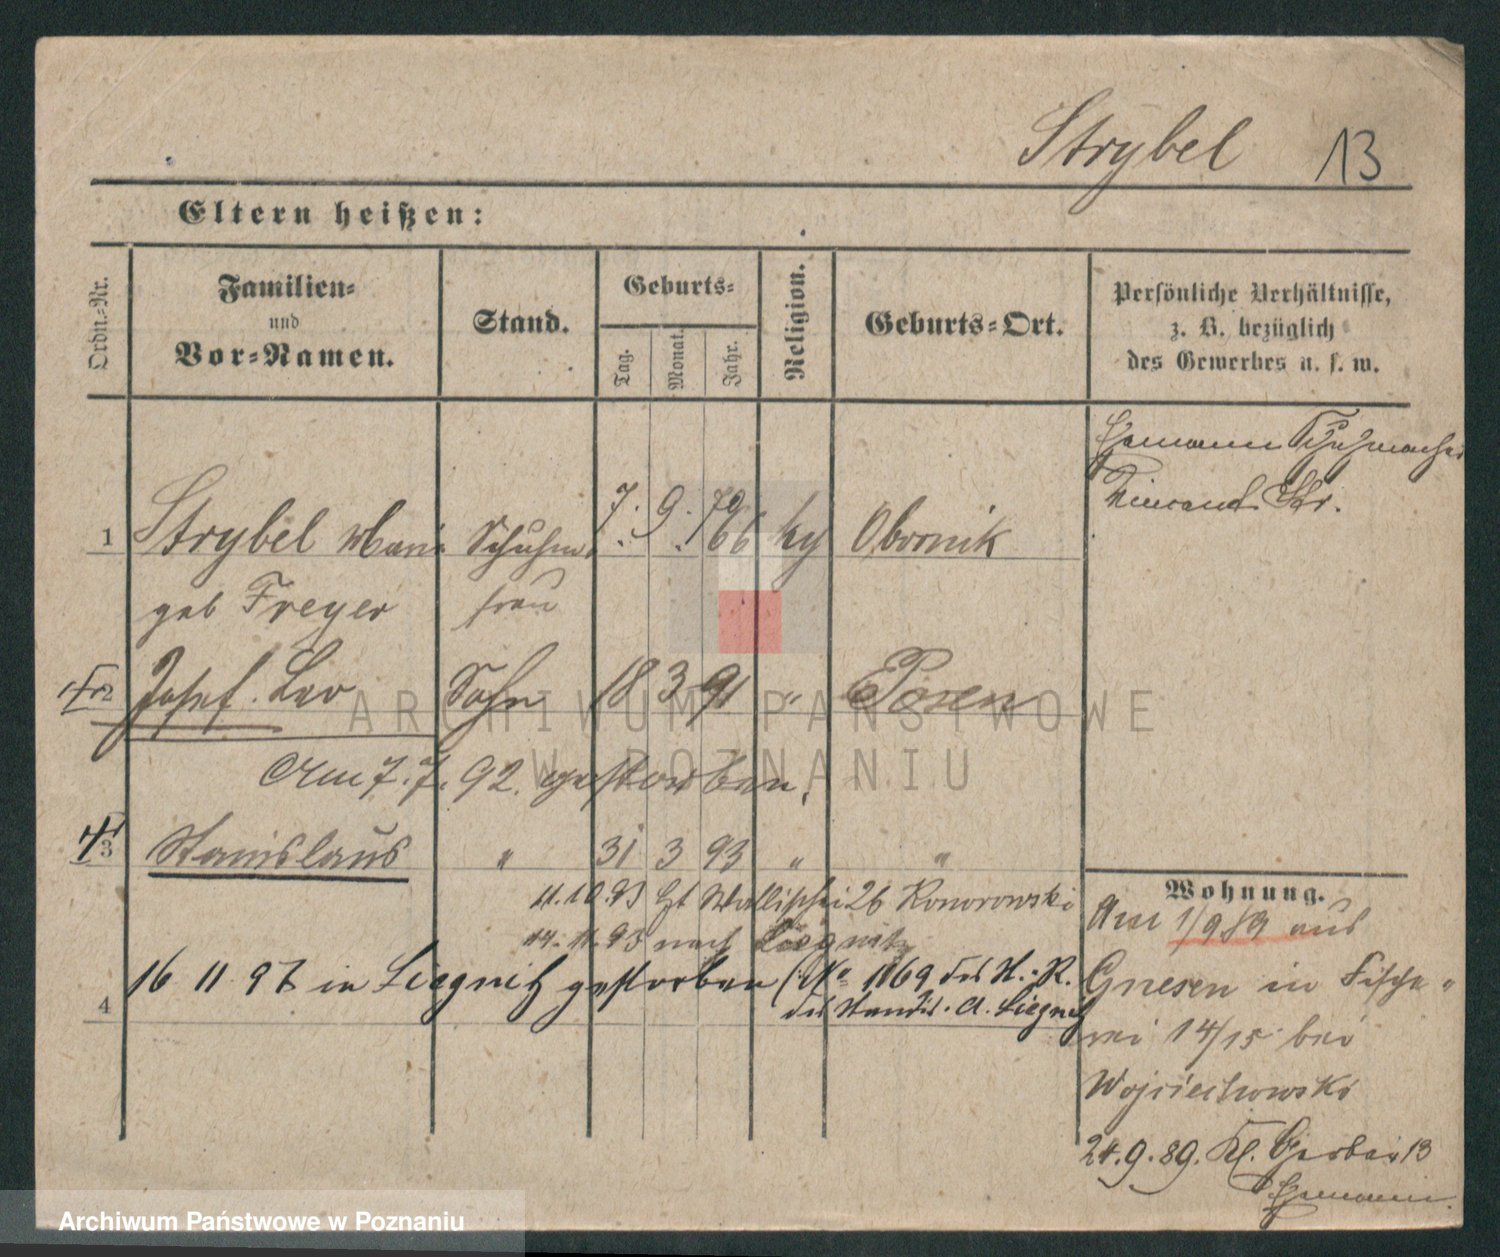 Strybel 13
Eltern heißen:
Ordn.-Nr.
Familien-
und
Vor-Namen.
Stand.
Geburts-
Tag.
Monat.
Jahr.
Religion.
Geburts-Ort.
Persönliche Verhältnisse,
z. B. bezüglich
des Gewerbes u. s. w.
Ehemann Schuhmacher
1 Strybel Maria Schuhm. 7. 9. 66 Obornik
geb Freyer frau
2 Josef Leo Sohn 18 3 91 " Posen
Am 7. 7. 92. gestorben.
3 Stanislaus " 31 3 93 " "
11.10.93 Wallischei 26 Konorowski
14. 11. 93 nach Liegnitz
16 11 97 in Liegnitz gestorben (No 1169 des H.-R.
4 des Standes. A. Liegnitz
Wohnung.
Am 1/9 89 aus
Gnesen in Fische-
rei 14/15 bei
Wojciechowski
24.9.89. Kl. Gerber 13
Ehemann.
ARCHIWUM PAŃSTWOWE
W POZNANIU
Archiwum Państwowe w Poznaniu